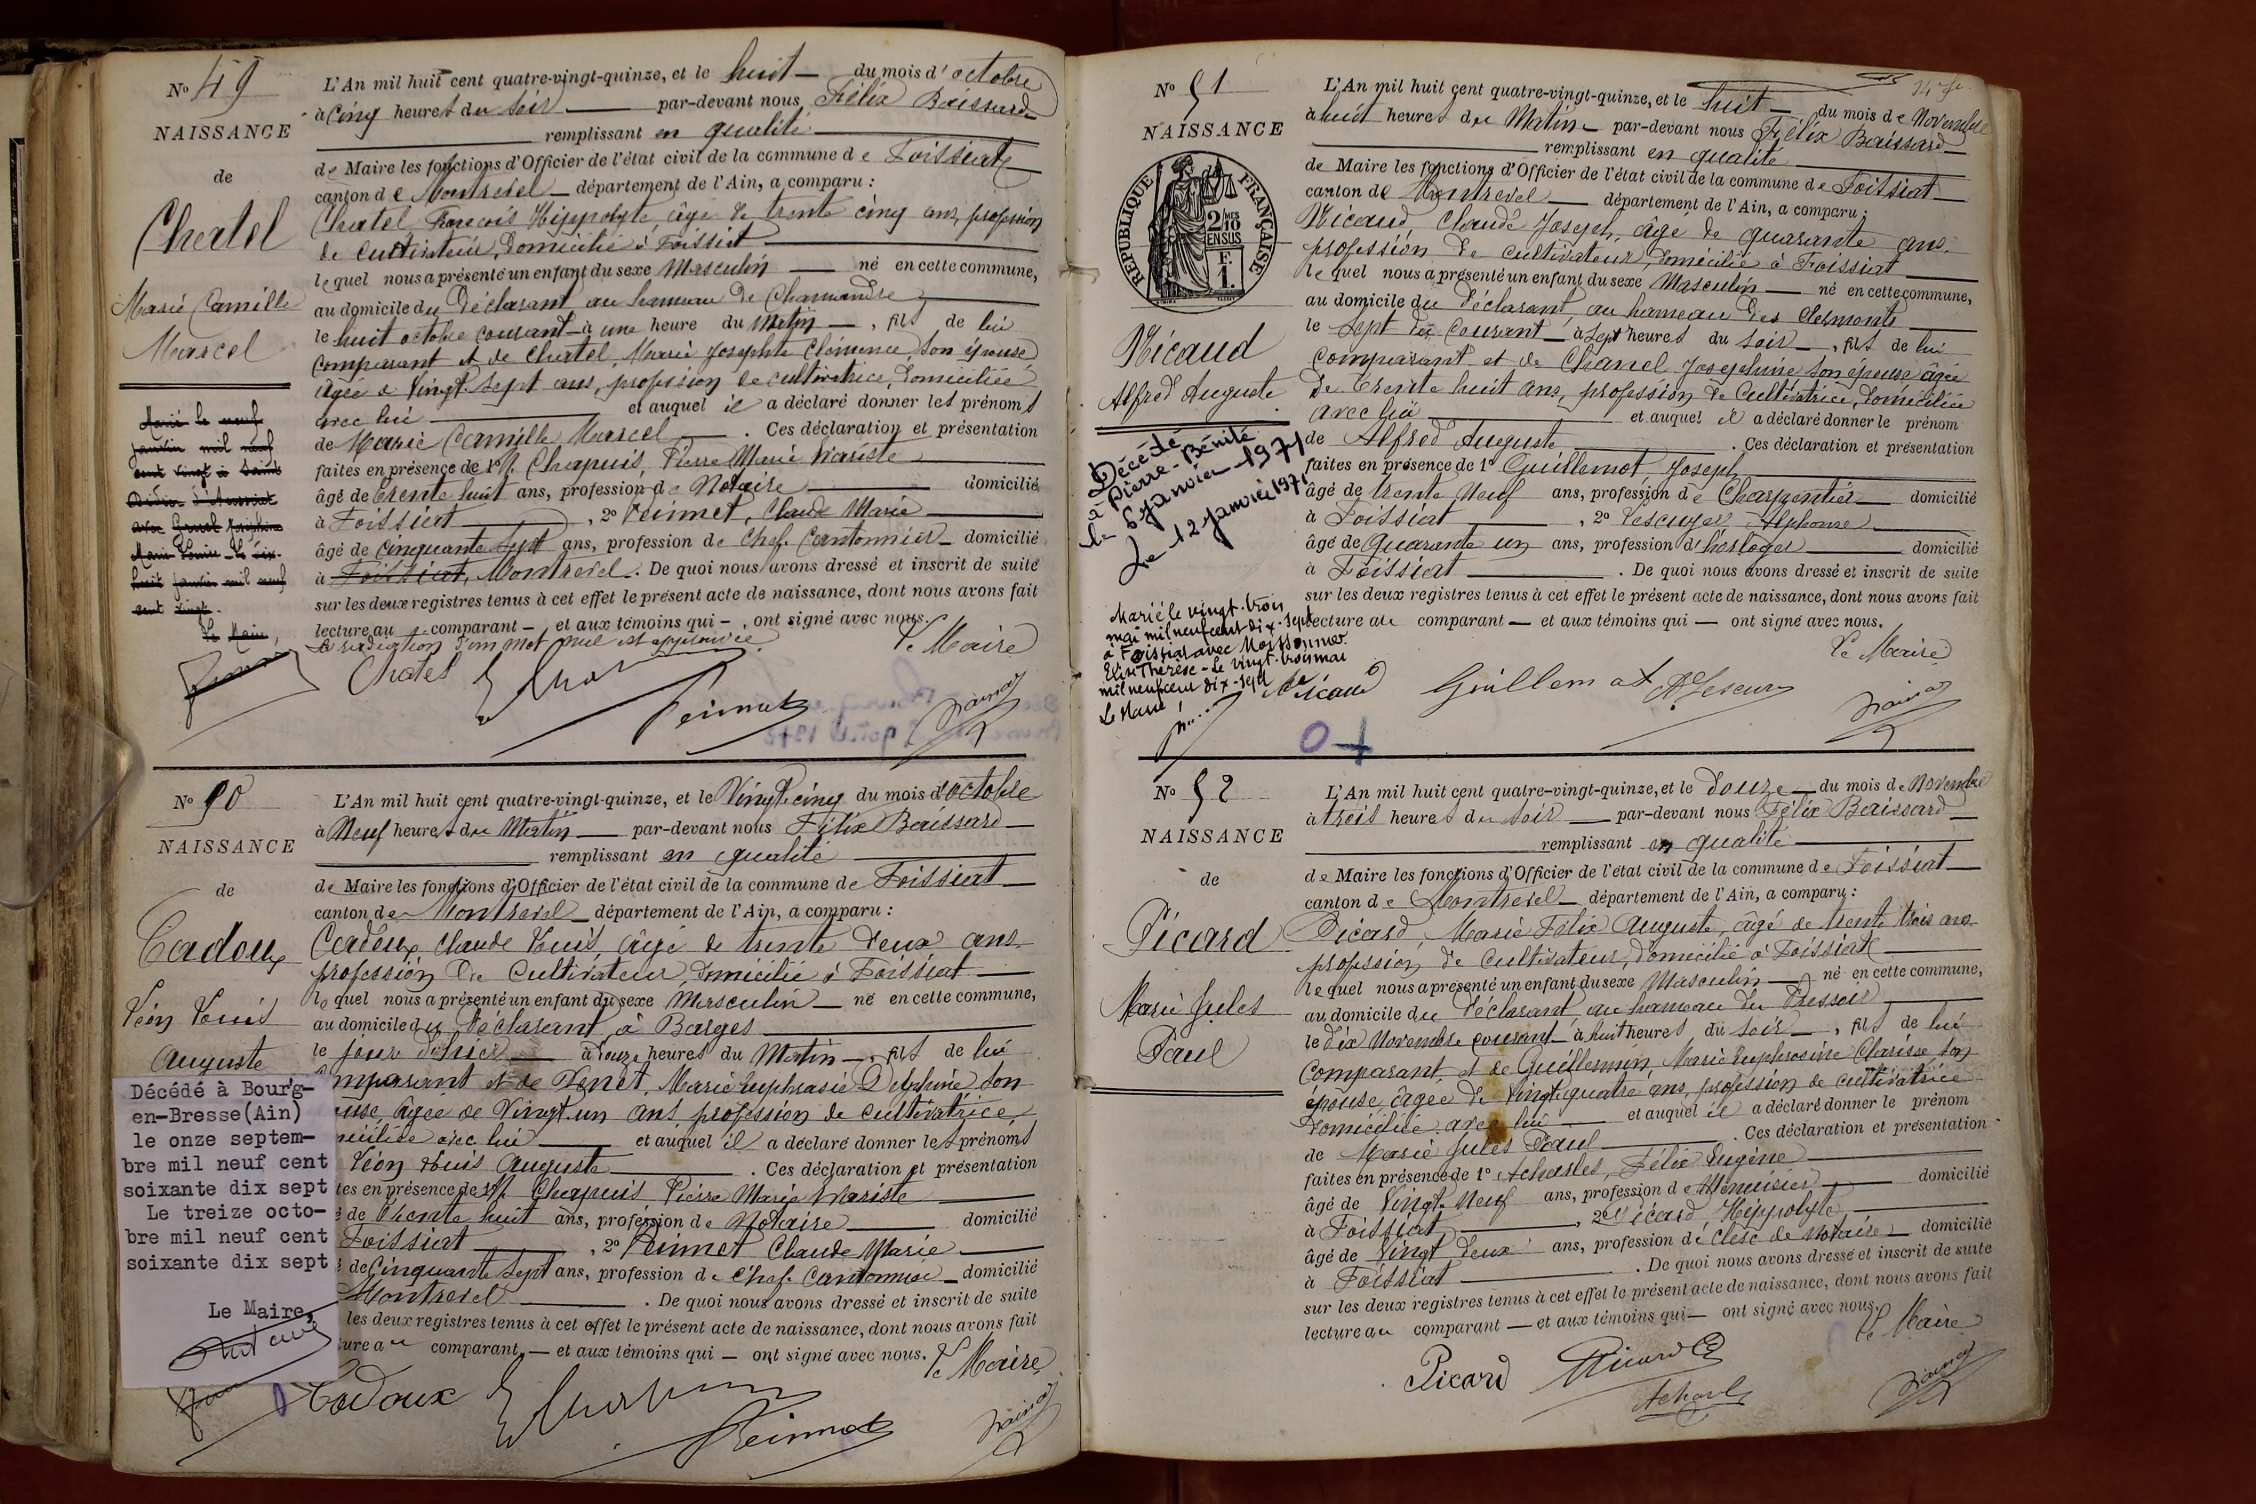 No 49
NAISSANCE
de
Chatel
Marie Camille
Marcel
Marié le neuf
janvier mil neuf
cent vingt à Saint
Didier d'Aussiat
avec
Marie Louise Le dix
huit janvier mil neuf
cent vingt.
Le Maire,
L'An mil huit cent quatre-vingt-quinze, et le huit du mois d'octobre
à cinq heures du soir par-devant nous Félix Baissard
remplissant en qualité
de Maire les fonctions d'Officier de l'état civil de la commune de Foissiat
canton de Montrevel département de l'Ain, a comparu :
Chatel François Hippolyte âgé de trente cinq ans, profession
de cultivateur, domicilié à Foissiat
lequel nous a présenté un enfant du sexe Masculin né en cette commune,
au domicile du déclarant au hameau de Chamandre
le huit octobre courant à une heure du Matin, fils de lui
comparant et de Chatel, Marie Josephte Clémence, son épouse
âgée de Vingt sept ans, profession de cultivatrice, domiciliée
avec lui et auquel il a déclaré donner les prénoms
de Marie Camille Marcel. Ces déclaration et présentation
faites en présence de 1° M. Chapuis, Pierre Marie Variste
âgé de trente huit ans, profession de Notaire domicilié
à Foissiat, 2° Peinnet, Claude Marie
âgé de Cinquante Sept ans, profession de Chef Cantonnier domicilié
à Foissiat, Montrevel. De quoi nous avons dressé et inscrit de suite
sur les deux registres tenus à cet effet le présent acte de naissance, dont nous avons fait
lecture au comparant et aux témoins qui, ont signé avec nous.
La radiation d'un mot nul est approuvée Le Maire
Chatel Peinnet
No 50
NAISSANCE
de
Cadoux
Léon Louis
Auguste
Décédé à Bourg-
en-Bresse(Ain)
le onze septem-
bre mil neuf cent
soixante dix sept
Le treize octo-
bre mil neuf cent
soixante dix sept
Le Maire,
L'An mil huit cent quatre-vingt-quinze, et le Vingt cinq du mois d'octobre
à Neuf heures du Matin par-devant nous Félix Baissard
remplissant en qualité
de Maire les fonctions d'Officier de l'état civil de la commune de Foissiat
canton de Montrevel département de l'Ain, a comparu :
Cadoux, Claude Louis, âgé de trente deux ans
profession de cultivateur, domicilié à Foissiat
lequel nous a présenté un enfant du sexe Masculin né en cette commune,
au domicile du déclarant, à Barges
le jour d'hier à onze heures du Matin, fils de lui
comparant et de Venet, Marie Euphrasie Delphine son
ouse, âgée de Vingt un ans, profession de cultivatrice,
miciliée avec lui et auquel il a déclaré donner les prénoms
Léon Louis Auguste. Ces déclaration et présentation
tes en présence de 1° M. Chapuis Pierre Marie Variste
é de trente huit ans, profession de Notaire domicilié
Foissiat, 2° Peinnet Claude Marie
é de Cinquante Sept ans, profession de Chef Cantonnier domicilié
Montrevel. De quoi nous avons dressé et inscrit de suite
les deux registres tenus à cet effet le présent acte de naissance, dont nous avons fait
ture au comparant, et aux témoins qui ont signé avec nous. Le Maire
Cadoux Peinnet
No 51
NAISSANCE
RÉPUBLIQUE FRANÇAISE
2/10
EN SUS
F.
1.
Micaud
Alfred Auguste
Décédé
à Pierre-Bénite
le 6 janvier 1971
Le 12 janvier 1971
Marié le vingt-trois
mai mil neuf cent dix-sept
à Foissiat avec Moissonnier
Elisa Thérèse - Le vingt-trois mai
mil neuf cent dix-sept
Le Maire,
L'An mil huit cent quatre-vingt-quinze, et le huit du mois de Novembre
à huit heures du Matin par-devant nous Félix Baissard
remplissant en qualité
de Maire les fonctions d'Officier de l'état civil de la commune de Foissiat
canton de Montrevel département de l'Ain, a comparu :
Micaud, Claude Joseph, âgé de quarante ans
profession de cultivateur, domicilié à Foissiat
lequel nous a présenté un enfant du sexe Masculin né en cette commune,
au domicile du déclarant, au hameau des Clermonts
le Sept du Courant à sept heures du soir, fils de lui
comparant et de Chanel Josephine son épouse âgée
de trente huit ans, profession de Cultivatrice, domiciliée
avec lui et auquel il a déclaré donner le prénom
de Alfred Auguste. Ces déclaration et présentation
faites en présence de 1° Guillemot Joseph
âgé de trente Neuf ans, profession de Charpentier domicilié
à Foissiat, 2° Lescuyer Alphonse
âgé de Quarante un ans, profession d'horloger domicilié
à Foissiat. De quoi nous avons dressé et inscrit de suite
sur les deux registres tenus à cet effet le présent acte de naissance, dont nous avons fait
lecture au comparant et aux témoins qui ont signé avec nous.
Le Maire
Micaud Guillemot
No 52
NAISSANCE
de
Picard
Marie Jules
Paul
L'An mil huit cent quatre-vingt-quinze, et le douze du mois de Novembre
à trois heures du soir par-devant nous Félix Baissard
remplissant en qualité
de Maire les fonctions d'Officier de l'état civil de la commune de Foissiat
canton de Montrevel département de l'Ain, a comparu :
Picard, Marie Félix Auguste, âgé de trente trois ans
profession de cultivateur, domicilié à Foissiat
lequel nous a présenté un enfant du sexe Masculin né en cette commune,
au domicile du déclarant, au hameau du Pressoir
le dix Novembre courant à huit heures du soir, fils de lui
comparant, et de Guillermin, Marie Euphrosine Clarisse, son
épouse, âgée de Vingt quatre ans, profession de cultivatrice
domiciliée avec lui et auquel il a déclaré donner le prénom
de Marie Jules Paul. Ces déclaration et présentation
faites en présence de 1° Acharles, Félix Eugène
âgé de Vingt Neuf ans, profession de Menuisier domicilié
à Foissiat, 2° Picard Hippolyte
âgé de Vingt deux ans, profession de clerc de Notaire domicilié
à Foissiat. De quoi nous avons dressé et inscrit de suite
sur les deux registres tenus à cet effet le présent acte de naissance, dont nous avons fait
lecture au comparant et aux témoins qui ont signé avec nous. Le Maire
Picard Picard